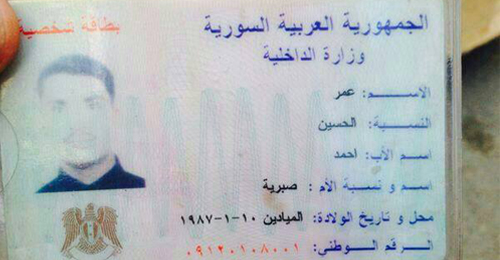 الجمهورية العربية السورية
بطاقة شخصية
وزارة الداخلية
الاسم: عمر
النسبة: الحسين
اسم الأب: احمد
اسم و نسبة الأم: صبرية
محل و تاريخ الولادة: الميادين ١٠-١-١٩٨٧
الرقم الوطني: ٠٩١٢٠١٠٨٠٠١